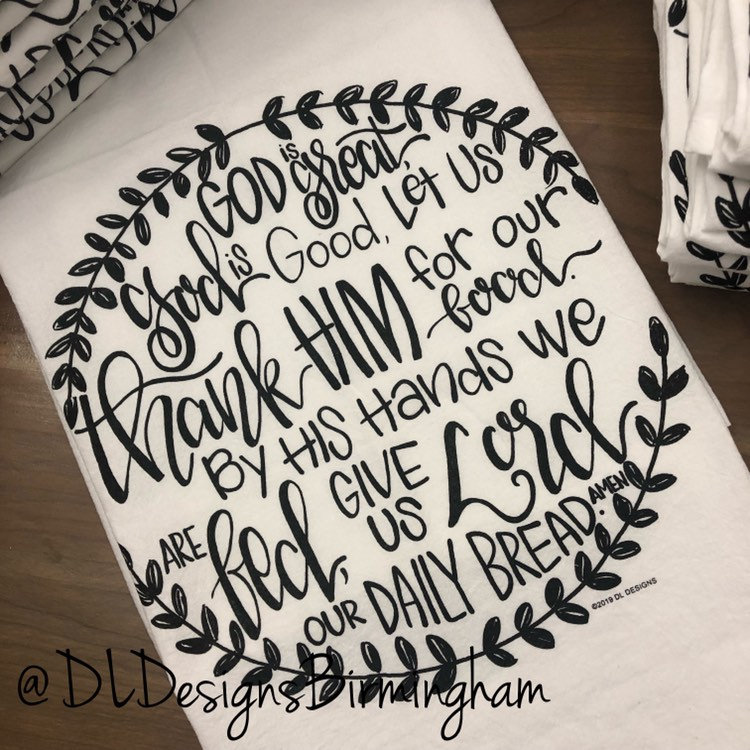 GOD is great,
God is Good, Let us
thank HIM for our food.
BY HIS Hands we
ARE fed, GIVE US Lord
OUR DAILY BREAD. AMEN
©2019 DL DESIGNS
@DLDesignsBirmingham